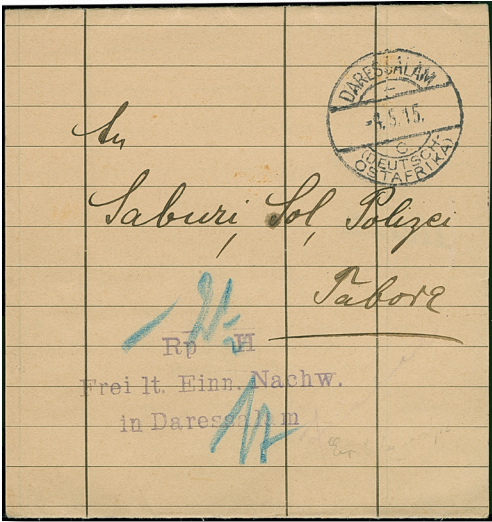 DARESSALAM
-4.5.15.
c
(DEUTSCH-
OSTAFRIKA)
An
Saburi, Sol, Polizei
Tabora
Rp H
Frei lt. Einn. Nachw.
in Daressalam